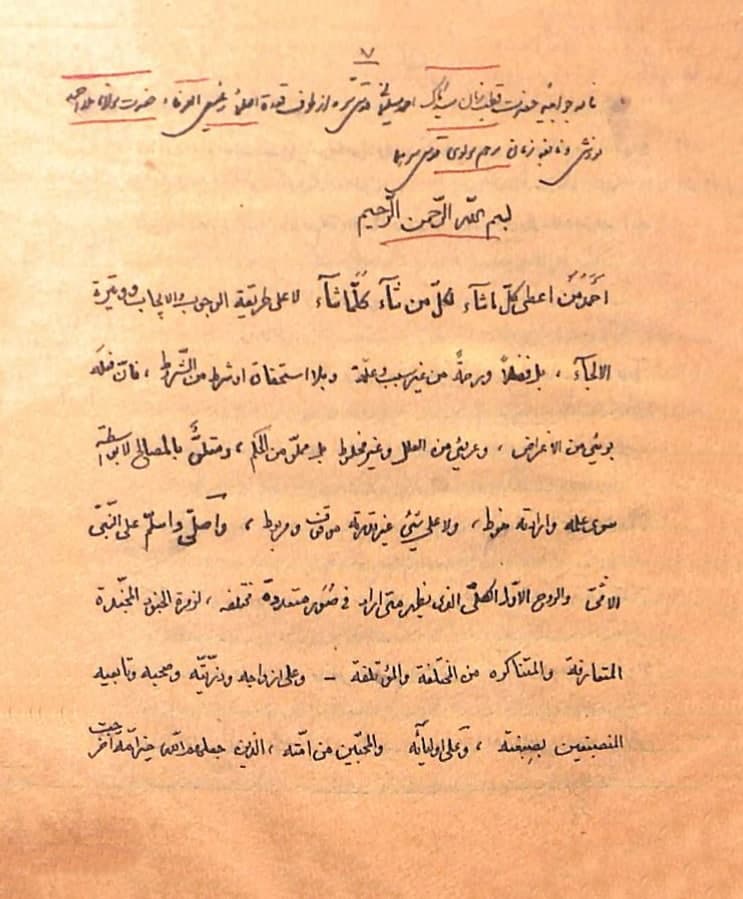 ٧
نامه جوابیه حضرت قطب زمان سید تاک احمد سلیمانی قدس سره از طرف قدوة العرفاء حضرت مولانا ملا احمد
نودشی و نابغه زمان مرحوم مولوی قدس سرهما
بسم الله الرحمن الرّحیم
اَحمَدُ مَن اعطی کلّ ماشآء لکلّ من شآء کلّما شآء لا علی طریقیة الوجوب والایجاب ووتیرة
الالجآء ، بل فضلاً ورحمةً من غیر سبب وعلّة وبلا استحقاق او شرط من الشّروط ، فانّ فعله
بریئ من الاغراض ، وعریئ من العلل وغیر مخلوط بل مملوّ من الحکم ، ومتعلّق بالمصالح لا بواسطة
سوی علمه وارادته منوط ، ولا علی شیئ غیر قدرته موقوف ومربوط ، واُصلّی واسلّم علی النّبیّ
الامّیّ والروح الاوّل الکلّیّ الذی یظهر متی اراد فی صُوَر متعددة مختلفه ، لزمرة الجنود المجنّدة
المتعارفة والمتناکره من المختلفة والمؤتلفة – وعلی ازواجه وذرّیّته وصحبه وتابعیه
المنصبغین بصبغته ، وَعَلی اولیآئه والمحبّین من امّته ، الذین جعلهم الله خیر امّة اخرجت